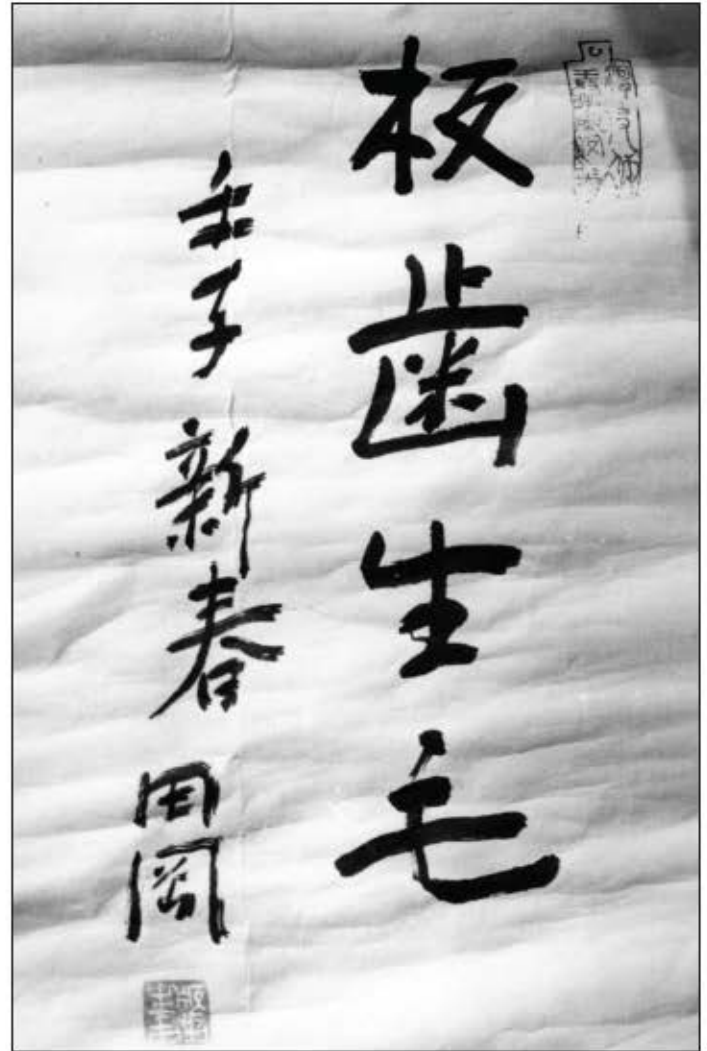 板歯生毛
壬子新春
田岡